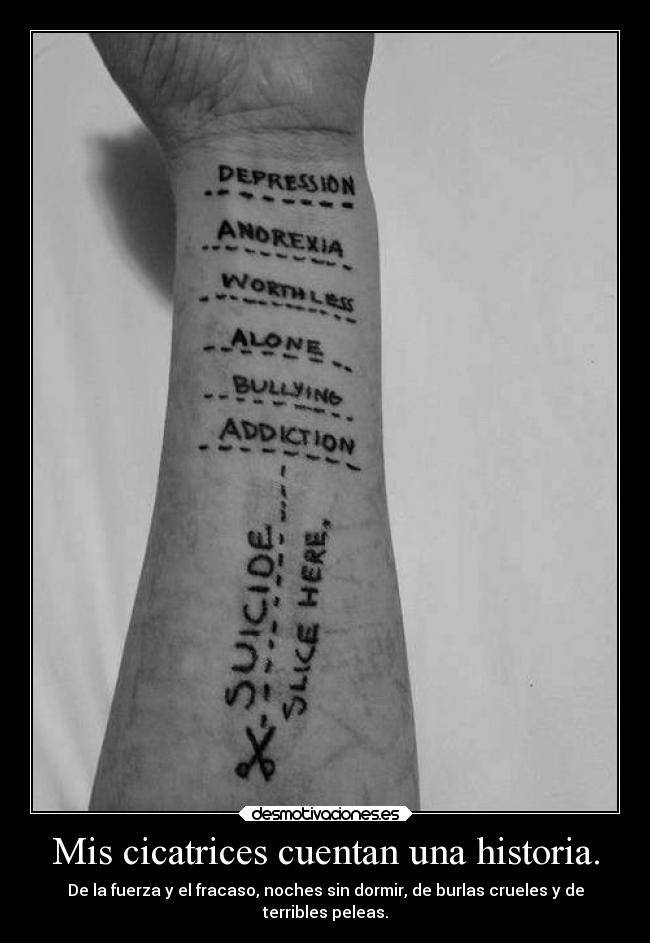 DEPRESSION
ANOREXIA
WORTHLESS
ALONE
BULLYING
ADDICTION
SUICIDE
SLICE HERE.
desmotivaciones.es
Mis cicatrices cuentan una historia.
De la fuerza y el fracaso, noches sin dormir, de burlas crueles y de
terribles peleas.